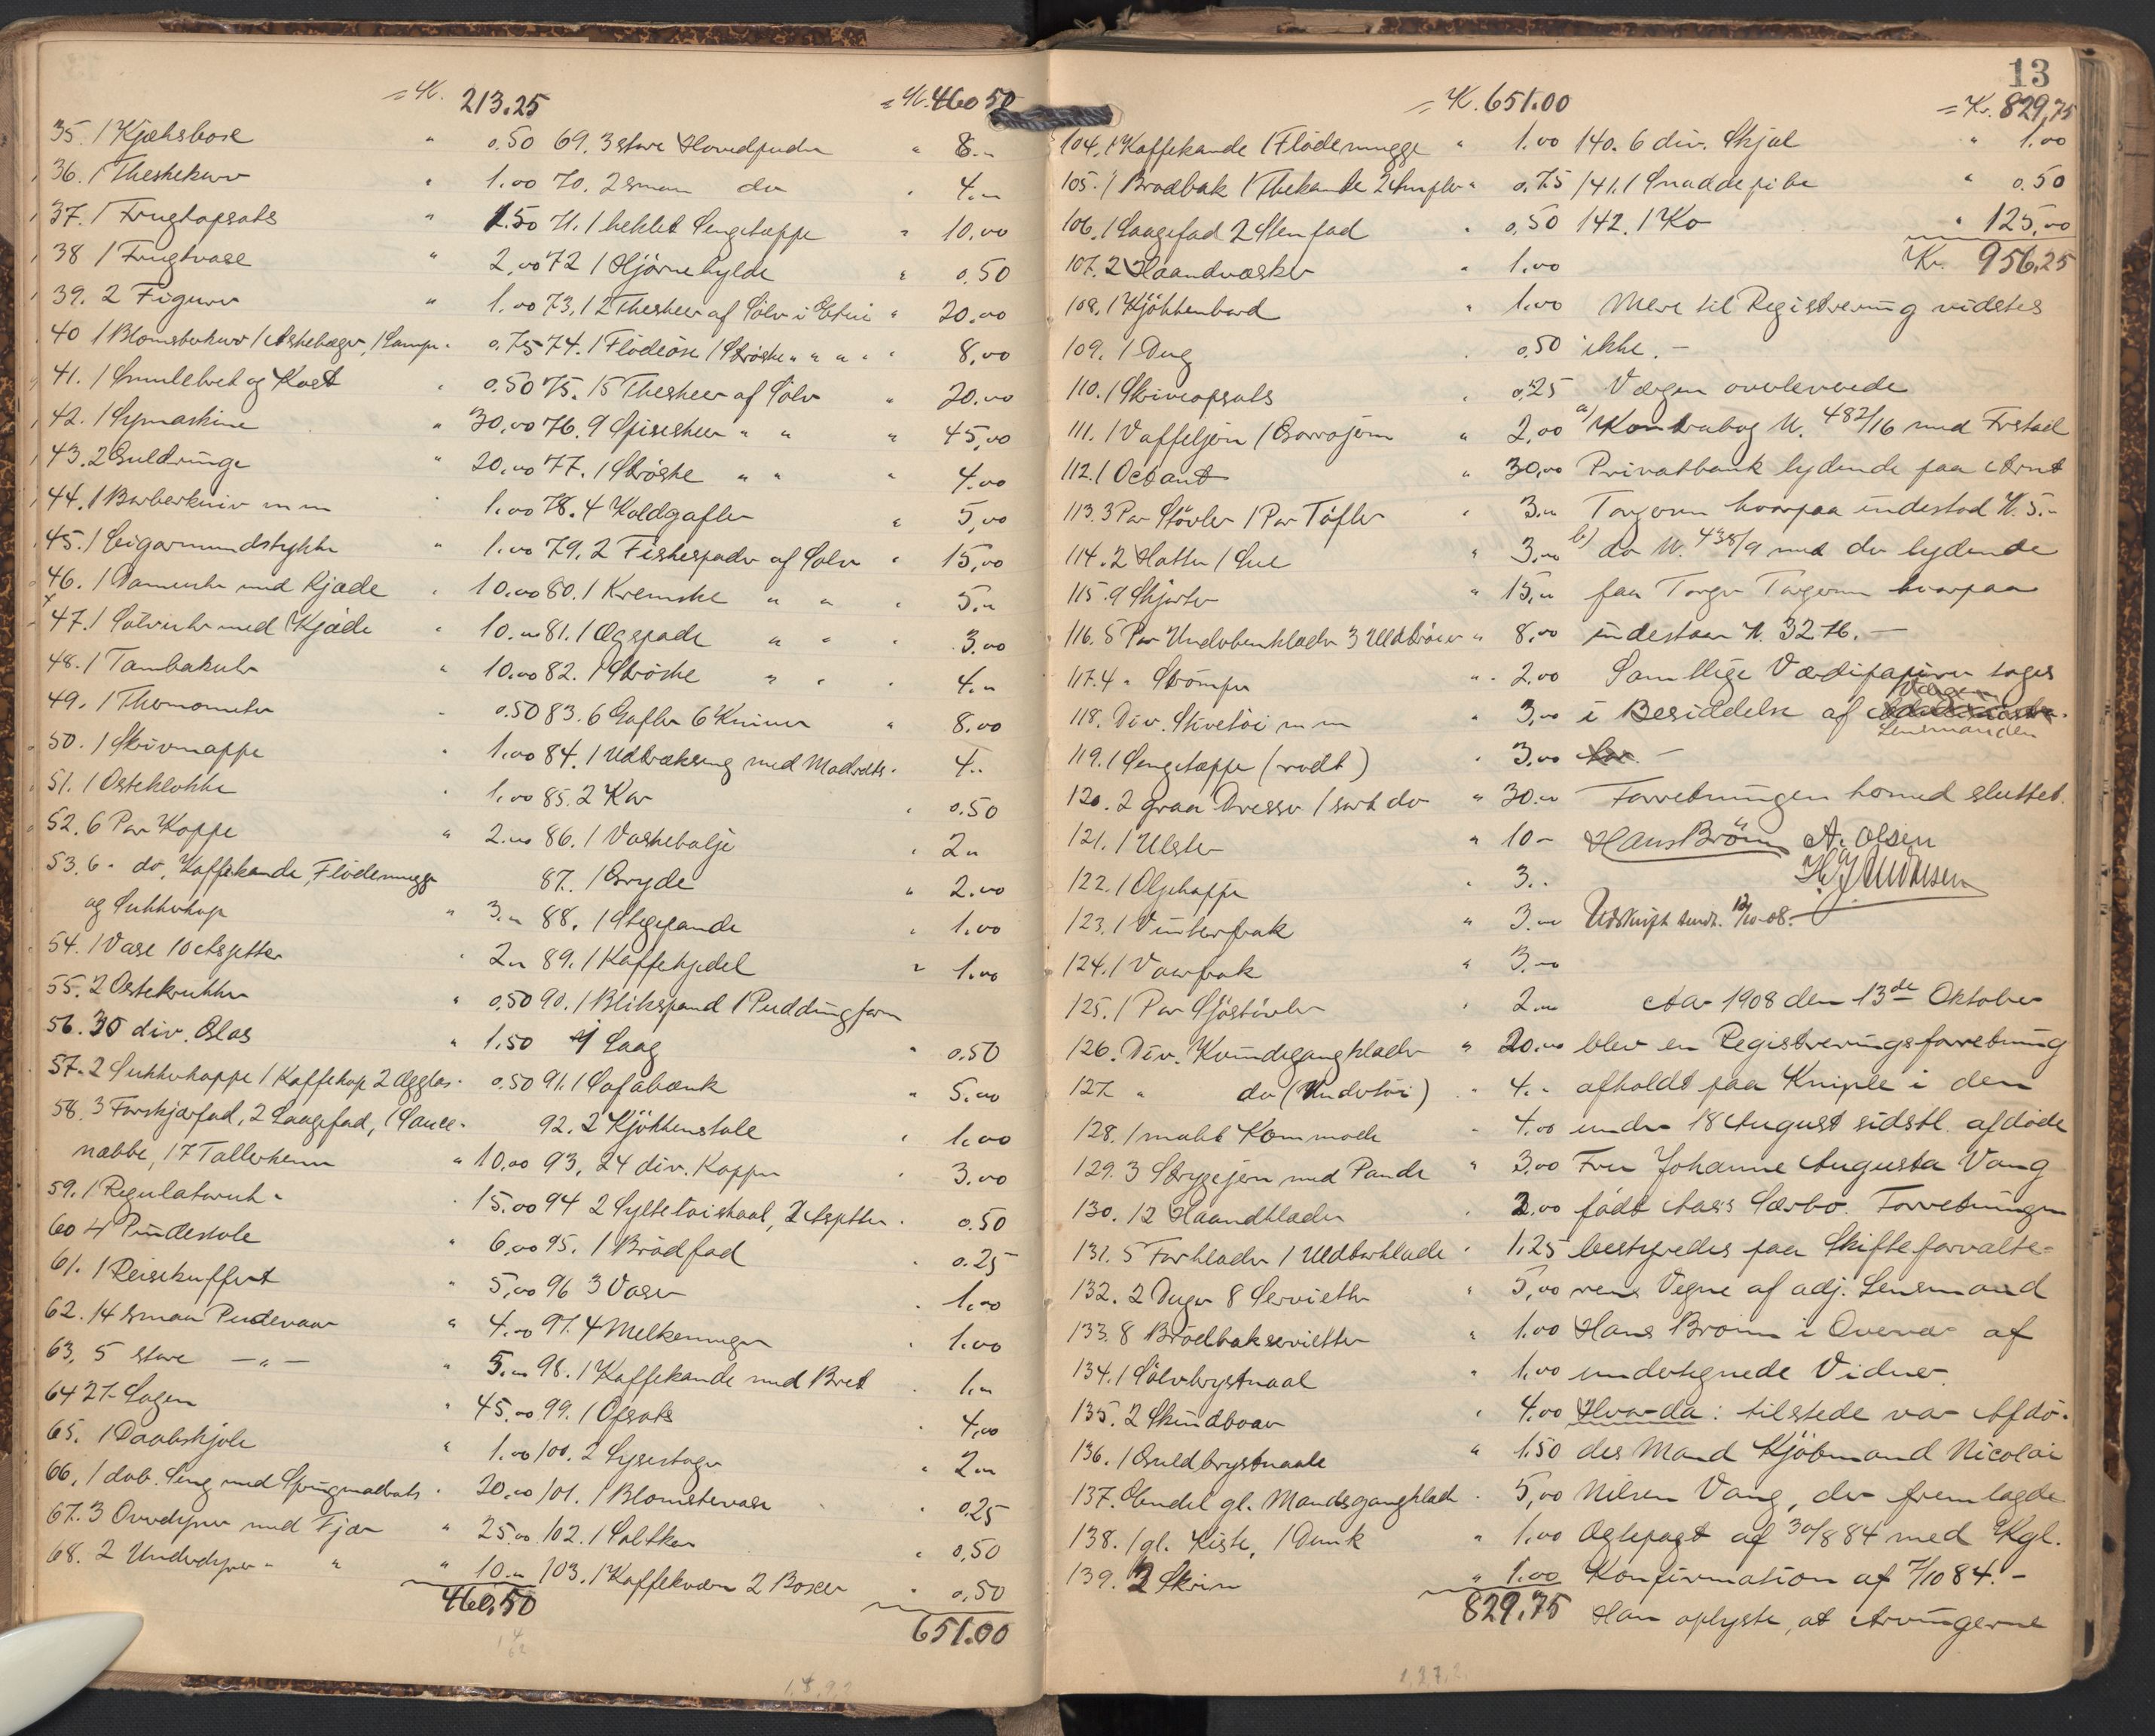 = K. 213.25
35. 1 Kjeksbox " 0.50
36. 1 Theskekurv " 1.00
37. 1 Frugtopsats " 1.50
38 1 Frugtvase " 2,00
39. 2 Figurer " 1.00
40 1 Blomsterkurv 1 Askebæger, 1 Lampe " 0.75
41. 1 Smulebret og Kost " 0.50
42. 1 Symaskine " 30,00
43. 2 Guldringe " 20.00
44. 1 Barberkniv m m " 1.00
45. 1 Cigarmundstykke " 1.00
46. 1 Dameuhr med Kjæde " 10.00
47. 1 Sølvuhr med Kjæde " 10.00
48. 1 Tambakuhr " 10.00
49. 1 Thermometer " 0.50
50. 1 Skrivmappe " 1.00
51. 1 Osteklokke " 1.00
52. 6 Par Koppe " 2.00
53. 6 " do, Kaffekande, Flødemugge
og Sukkerkop " 3.00
54. 1 Vase 10 Asjetter " 2.00
55. 2 Ostekrukker " 0,50
56. 30 div. Glas " 1.50
57. 2 Sukkerkoppe 1 Kaffekop 2 Ægglas " 0.50
58. 3 Forskjærfad, 2 Laagefad, 1 Sauce-
nebbe, 17 Tallerkener " 10.00
59. 1 Regulatoruhr " 15.00
60 4 Pindestole " 6,00
61. 1 Reisekuffert " 5,00
62. 14 smaa Pudevaar " 4.00
63. 5 store — " — " 5.00
64 27 Lagen " 45.00
65. 1 Daabskjole " 1.00
66. 1 dob. Seng med Springmadrats " 20,00
67. 3 Overdyner med Fjær " 25.00
68. 2 Underdyner " " " 10.00
460.50
= K. 460 50
69. 3 store Hovedpuder " 8.00
70. 2 smaa do " 4.00
71. 1 heklet Sengetæppe " 10,00
72 1 Hjørnehylde " 0.50
73. 12 Theskeer af Sølv i Etui " 20.00
74. 1 Flødeøse 1 Strøske " " " " 8,00
75. 15 Theskeer af Sølv " 20.00
76. 9 Spiseskeer " " " 45,00
77. 1 Strøske " " " 4.00
78. 4 Koldgafler " 5,00
79. 2 Fiskespader af Sølv " 15,00
80. 1 Kremske " " " 5.00
81. 1 Ægspade " " " 3.00
82. 1 Strøske " " " 4.00
83. 6 Gafler 6 Kniver " 8.00
84. 1 Udtræksseng med Madrats " 4.00
85. 2 Kar " 0.50
86. 1 Vaskebalje " 2.00
87. 1 Gryde " 2.00
88. 1 Stegepande " 1.00
89. 1 Kaffekjedel " 1.00
90. 1 Blikspand 1 Puddingform
1 Laag " 0.50
91. 1 Sofabænk " 5.00
92. 2 Kjøkkenstole " 1.00
93. 24 div. Kopper " 3.00
94 2 Syltetøiskaal, 2 Asjetter " 0.50
95. 1 Brødfad " 0.25
96 3 Vaser " 1.00
97. 4 Melkemugger " 1.00
98. 1 Kaffekande med Bret " 1.00
99. 1 Opsats " 4,00
100. 2 Lysestager " 2.00
101. 1 Blomstervase " 0.25
102. 1 Saltkar " 0,50
103. 1 Kaffekværn 2 Boxer " 0,50
651.00
13
= K. 651.00
104. 1 Kaffekande 1 Flødemugge " 1.00
105. 1 Brødbak 1 Thekande " 0,75
106. 1 Laagefad 2 Stenfad " 0,50
107. 2 Haandvæsker " 1.00
108. 1 Kjøkkenbord " 1.00
109. 1 Dug " 0.50
110. 1 Skriveopsats " 0.25
111. 1 Vaffeljern 1 Gorrojern " 2,00
112. 1 Octant " 30,00
113. 3 Par Støvler 1 Par Tøfler " 3.00
114. 2 Hatter 1 Lue " 3,00
115. 9 Skjorter " 15,00
116. 5 Par Underbenklæder 3 Uldtrøier " 8,00
117. 4 " Strømper " 2.00
118. Div. Stivetøi m m " 3,00
119. 1 Sengetæppe (rødt) " 3.00
120. 2 graa Dresser 1 sort do " 30.00
121. 1 Ulster " 10 -
122. 1 Oljekappe " 3..
123. 1 Vinterfrak " 3.00
124. 1 Vaarfrak " 3.00
125. 1 Par Sjøstøvler " 2.00
126. Div. Kvindegangklæder " 20.00
127. " do (Undertøi) " 4.00
128. 1 malt Kommode " 4.00
129. 3 Strygejern med Pande " 3,00
130. 12 Haandklæder " 2.00
131. 5 Forklæder 1 Uldtørklæde " 1.25
132. 2 Duger 8 Servietter " 5,00
133. 8 Brødbakservietter " 1.00
134. 1 Sølvbrystnaal " 1.00
135. 2 Skindboaer " 4.00
136. 1 Guldbrystnaale " 1.50
137. Endel gl. Mandsgangklæder " 5,00
138. 1 gl. Kiste, 1 Dunk " 1.00
139. 2 Skrin " 1.00
829.75
= Kr. 829,75
140. 6 div. Skjøl " 1.00
141. 1 Snaddepibe " 0.50
142. 1 Ko " 125,00
Kr. 956,25
Mere til Registrering vidstes
ikke. —
Værgen overleverede
a/ Kontrabog N. 482/16 med Frstad
Privatbank lydende paa Arnt
Torgersen hvorpaa indestod K. 5.-
b/ do N. 438/9 med do lydende
paa Torger Torgersen hvorpaa
indestaar K. 32.16. —
Samtlige Værdipapirer toges
i Besiddelse af Værgen
Lensmanden
Forretningen hermed sluttet.
Hans Brøm A. Olsen
Udskrift sendt. 12/10-08. —
Aar 1908 den 13de Oktober
blev en Registreringsforretning
afholdt paa Kniple i den
under 18 August sidstl. afdøde
Fru Johanne Augusta Vang
født Aass Særbo. Forretningen
bestyredes paa Skifteforvalte-
rens Vegne af adj. Lensmand
Hans Brøm i Overvær af
undertegnede Vidner.
Hvorda: tilstede var Afdø-
des Mand Kjøbmand Nicolai
Nilsen Vang, der fremlagde
Ægtepagt af 30/8 84 med Kgl.
Konfirmation af 7/10 84. -
Han oplyste, at Arvingerne